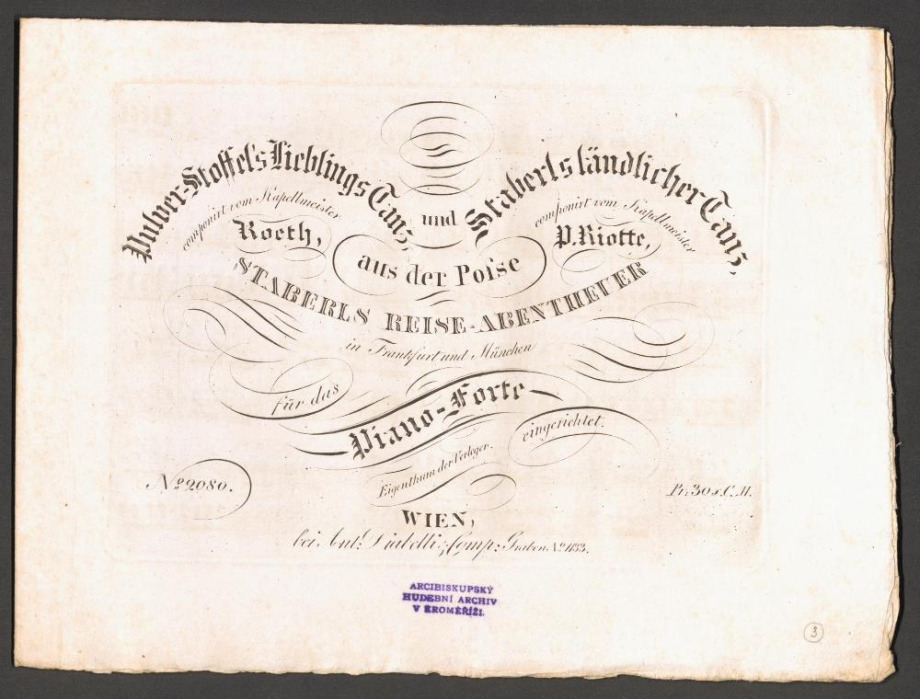 Pulver-Stoffel's Lieblings Tanz,
componirt vom Kapellmeister
Roeth,
und
Staberls ländlicher Tanz,
componirt vom Kapellmeister
P. Riotte,
aus der Poise
STABERLS REISE-ABENTHEUER
in Frankfurt und München
für das
Piano-Forte
eingerichtet.
Eigenthum der Verleger.
No 2080.
Pr. 30 x C. M.
WIEN,
bei Ant: Diabelli & Comp: Graben No 1133.
ARCIBISKUPSKÝ
HUDEBNÍ ARCHIV
V KROMĚŘÍŽI.
3